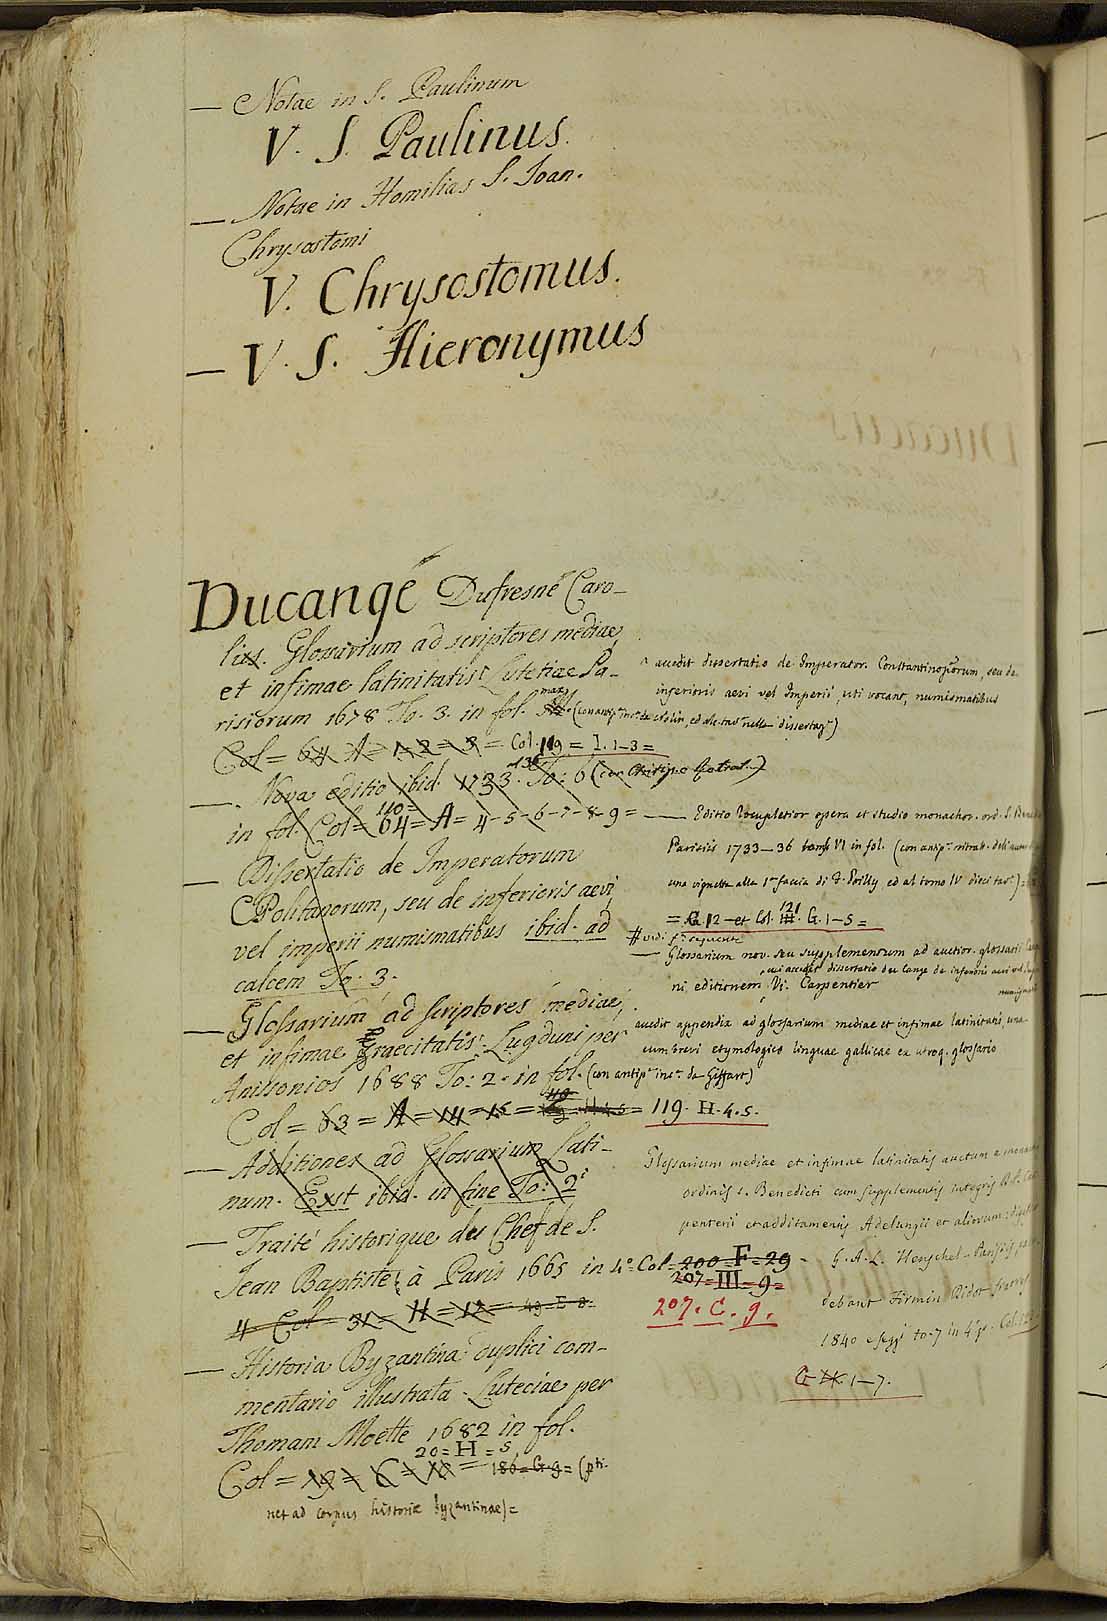 — Notae in S. Paulinum
V. S. Paulinus.
— Notae in Homilias S. Joan.
Chrysostomi
V. Chrysostomus.
— V. S. Hieronymus
Ducangé Dufresne Caro-
lus. Glossarium ad scriptores mediae,
et infimae latinitatis Lutetiae Pa-
risiorum 1678 To. 3. in fol. max
Col = 64 A = 1 2 = 3 = Col. 119 = I. 1-3 =
—. Nova editio ibid. 1733. To: 6
in fol. Col = 64 = A = 4-5-6-7-8-9 =
110 =
— Dissertatio de Imperatorum
CPolitanorum, seu de inferioris aevi,
vel imperii numismatibus ibid. ad
calcem To: 3.
— Glossarium ad scriptores mediae,
et infimae Graecitatis: Lugduni per
Anissonios 1688 To: 2. in fol. (con antip. inc. da Giffart)
Col = 63 = A = 14 = 15 = = 119. H. 4. 5.
— Additiones ad Glossarium Lati-
num. Ext ibid. in fine To: 2i
— Traité historique du Chef de S.
Jean Baptiste à Paris 1665 in 4.o Col = 200 = F = 29
207 = III = 9 =
207. C. 9.
4 Col 31 = H = 12 = 49-E-8-
— Historia Byzantina duplici com-
mentario illustrata. Luteciae per
Thomam Moette 1682 in fol.
20 = H = 5
Col = 19 = 6 = 10 = 186 = G. 9 = (pti-
net ad corpus historiae byzantinae) =
^ accedit dissertatio de Imperator. Constantinoporum, seu de
inferioris aevi vel Imperii, uti vocant, numismatibus
— Editio locupletior opera et studio monachor. ord. S.
Parisiis 1733-36 tomi VI in fol. (con antip.
una vignetta alla 1a faccia di Poilly, ed al tomo IV dieci tav.)
= 12 - et Col. 121 G. 1-5 =
# vidi f. sequente
— Glossarium nov. seu supplementum ad auctior. glossarii
cui accedit dissertatio du Cange de inferioris aevi
ni editionem. Carpentier
accedit appendix ad glossarium mediae et infimae latinitatis, una
cum brevi etymologico linguae gallicae ex utroq. glossario
Glossarium mediae et infimae latinitatis auctum a
ordinis S. Benedicti cum supplementis integris
penterii et additamentis Adelungii et aliorum
G. A. L. Henschel - Parisiis
debant Firmin Didot
1840 e segg. to. 7 in 4o
G 1-7.